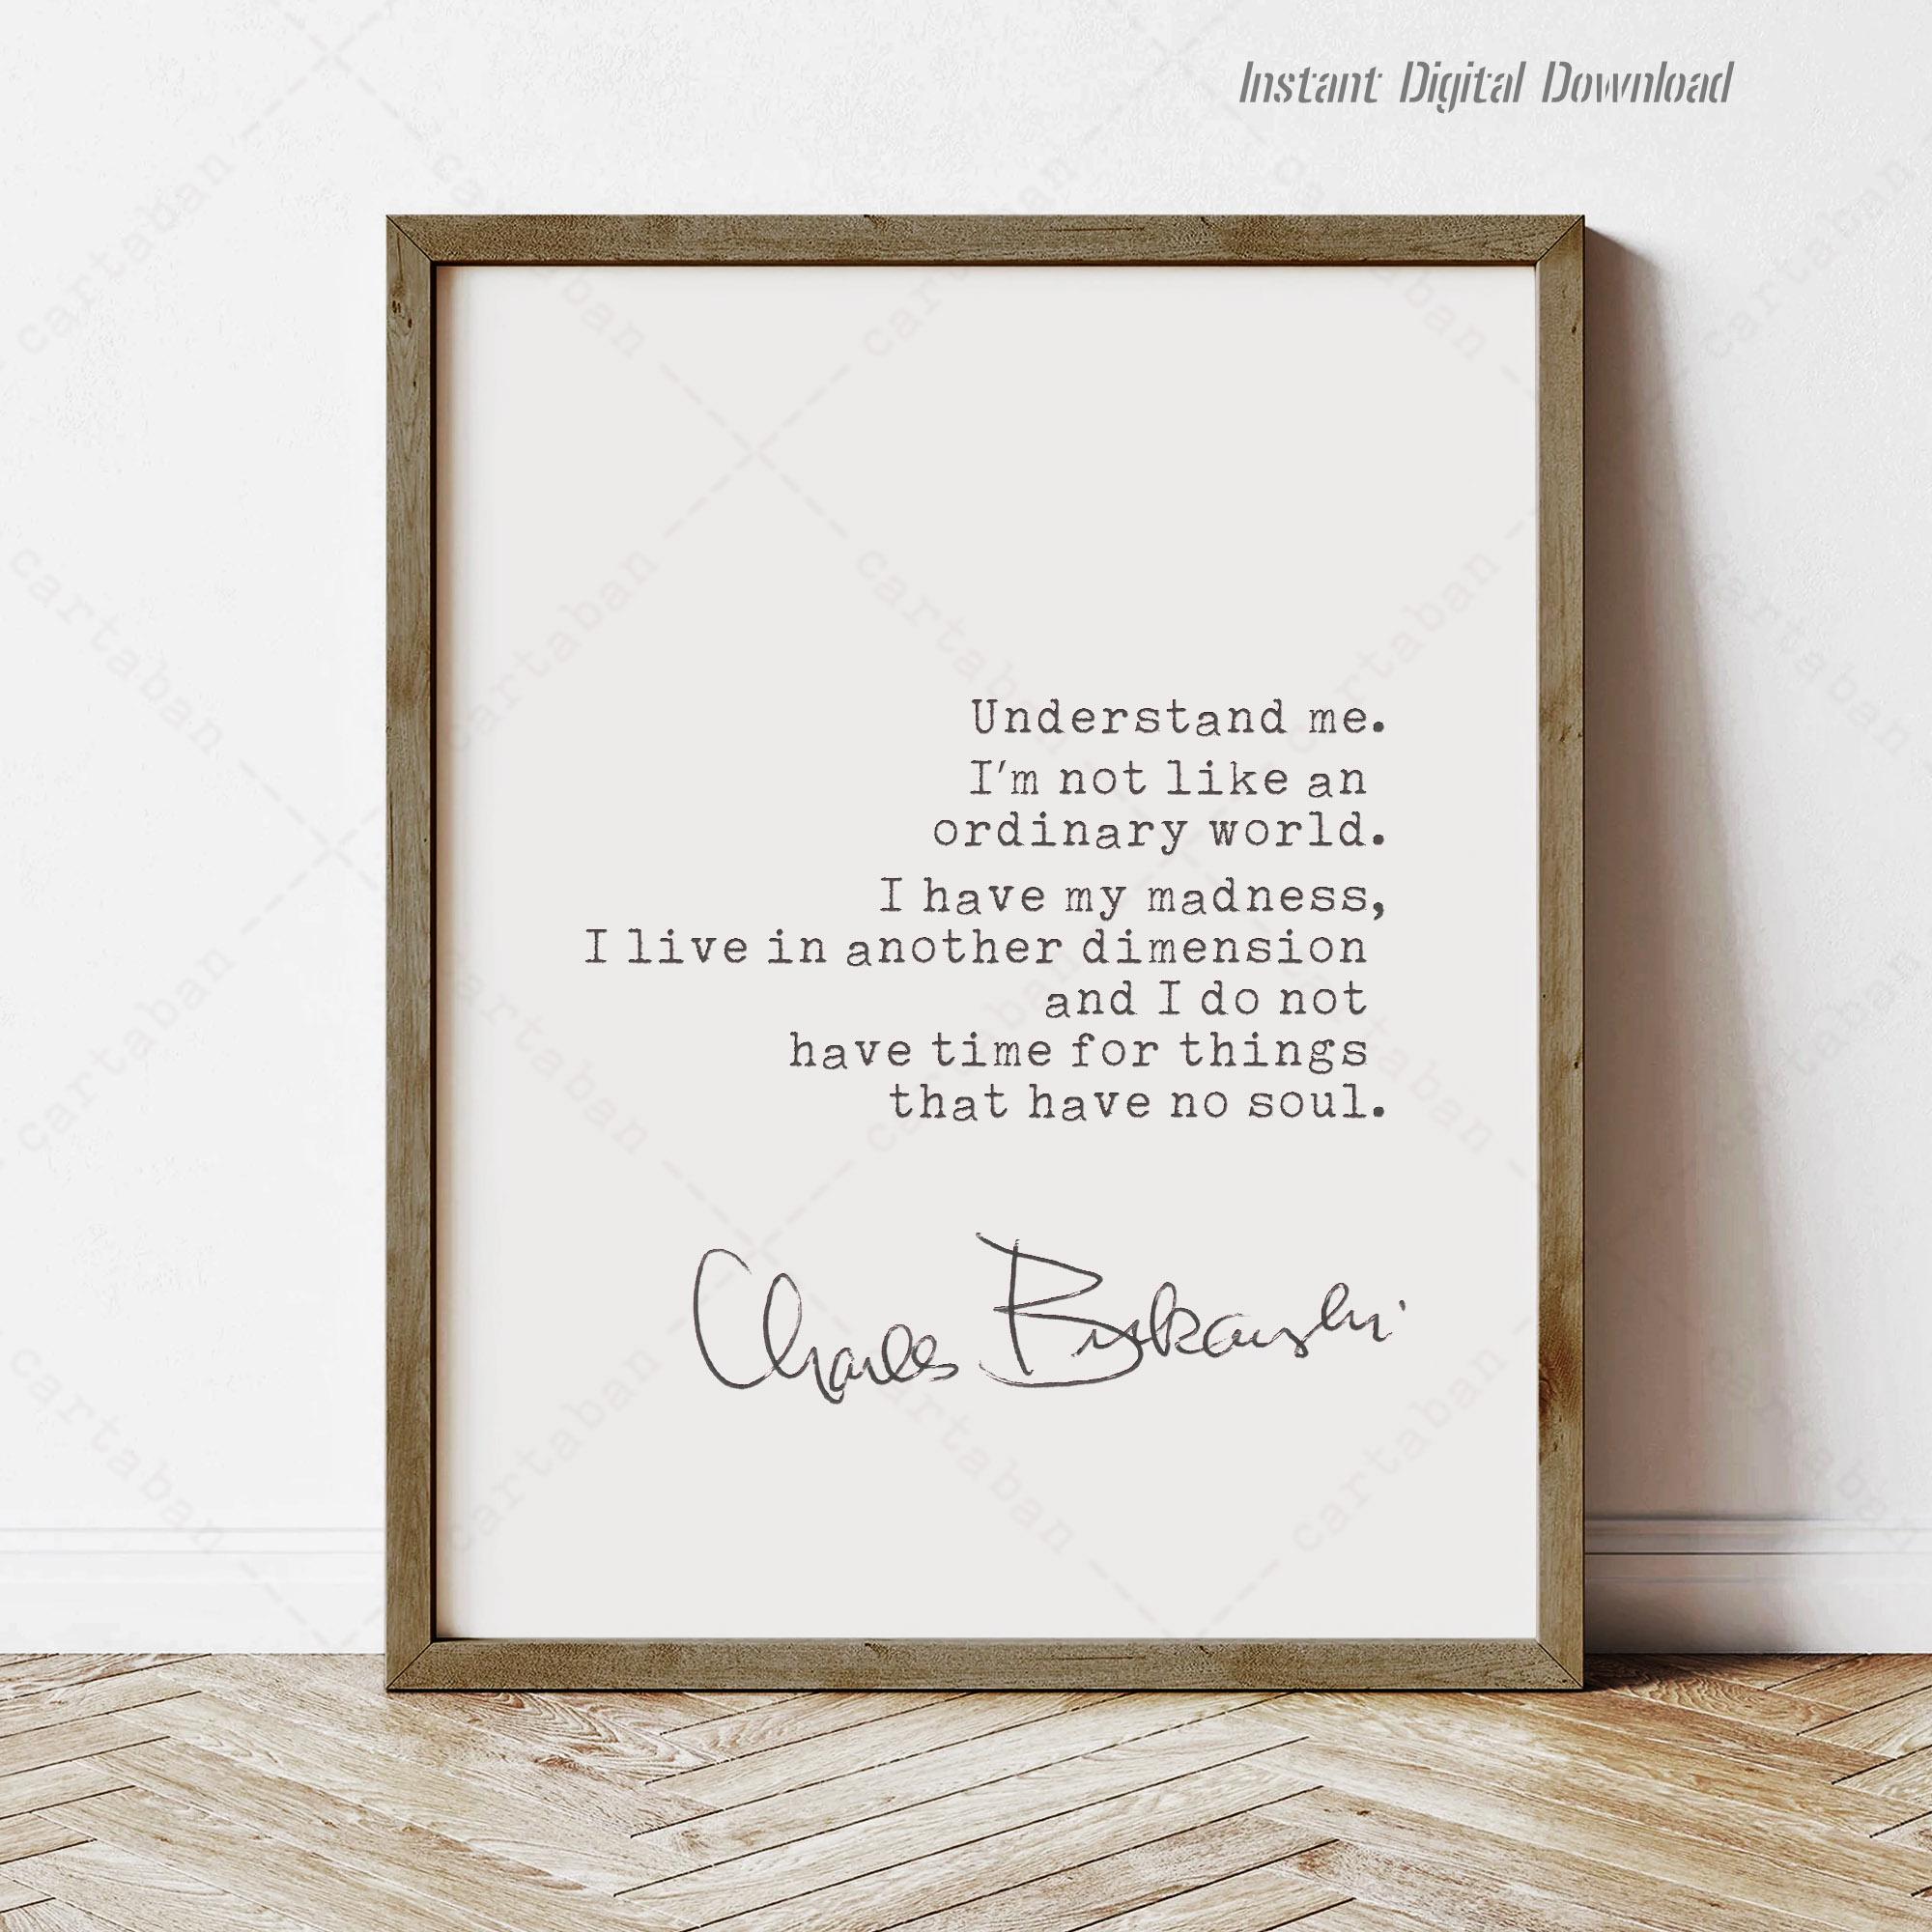 Instant Digital Download
Understand me.
I'm not like an
ordinary world.
I have my madness,
I live in another dimension
and I do not
have time for things
that have no soul.
Charles Bukowski
cartaban